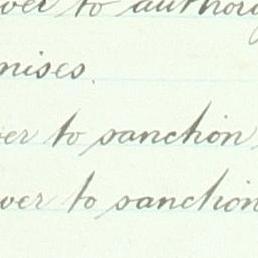 wer to authori
mises.
er to sanction
wer to sanction